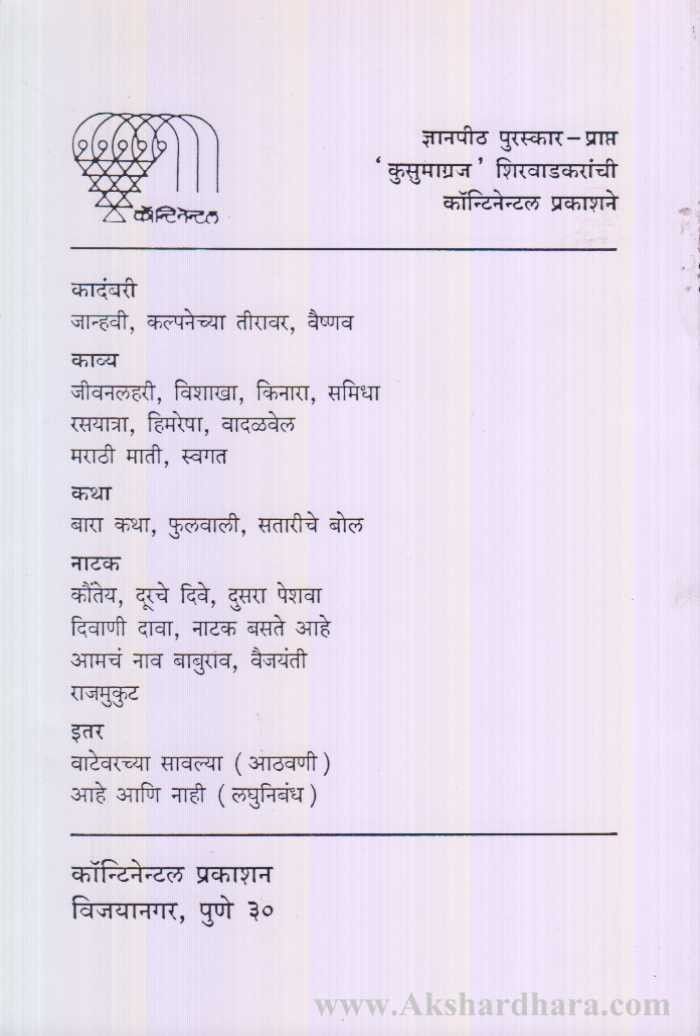 कॉन्टिनेन्टल
ज्ञानपीठ पुरस्कार – प्राप्त
‘ कुसुमाग्रज ’ शिरवाडकरांची
कॉन्टिनेन्टल प्रकाशने
कादंबरी
जान्हवी, कल्पनेच्या तीरावर, वैष्णव
काव्य
जीवनलहरी, विशाखा, किनारा, समिधा
रसयात्रा, हिमरेषा, वादळवेल
मराठी माती, स्वगत
कथा
बारा कथा, फुलवाली, सतारीचे बोल
नाटक
कौंतेय, दूरचे दिवे, दुसरा पेशवा
दिवाणी दावा, नाटक बसते आहे
आमचं नाव बाबुराव, वैजयंती
राजमुकुट
इतर
वाटेवरच्या सावल्या ( आठवणी )
आहे आणि नाही ( लघुनिबंध )
कॉन्टिनेन्टल प्रकाशन
विजयानगर, पुणे ३०
www.Akshardhara.com